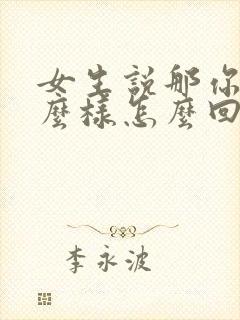 女生説那你
麼樣怎麼回
李永波